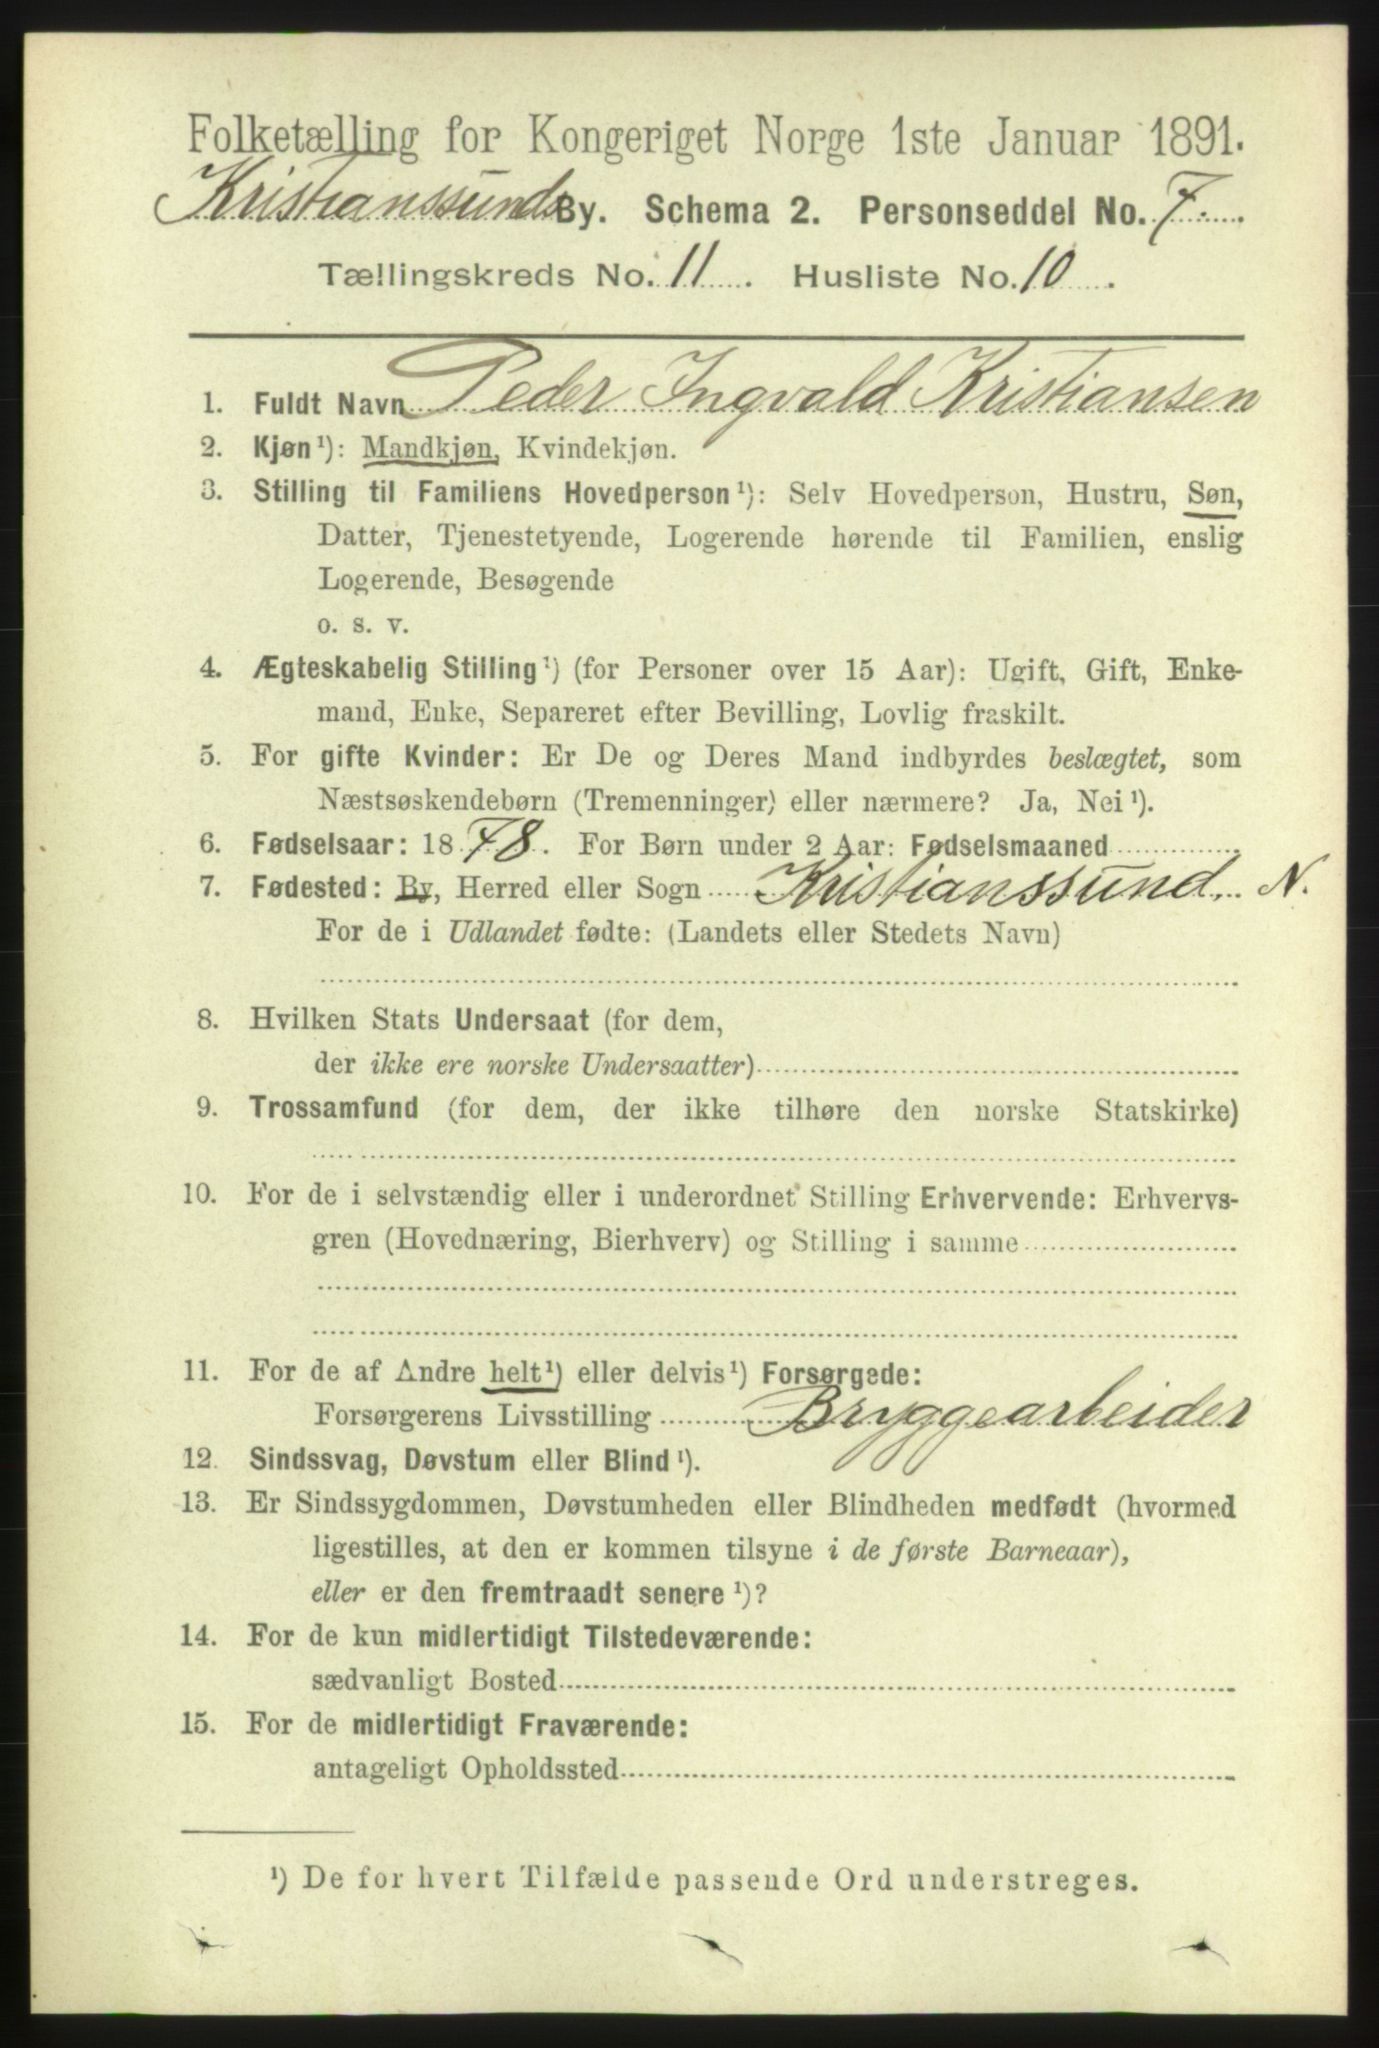 Folketælling for Kongeriget Norge 1ste Januar 1891.
Kristianssunds By. Schema 2. Personseddel No. 7.
Tællingskreds No. 11. Husliste No. 10.
1. Fuldt Navn Peder Ingvald Kristiansen
2. Kjøn¹): Mandkjøn, Kvindekjøn.
3. Stilling til Familiens Hovedperson¹): Selv Hovedperson, Hustru, Søn,
Datter, Tjenestetyende, Logerende hørende til Familien, enslig
Logerende, Besøgende
o. s. v.
4. Ægteskabelig Stilling¹) (for Personer over 15 Aar): Ugift, Gift, Enke-
mand, Enke, Separeret efter Bevilling, Lovlig fraskilt.
5. For gifte Kvinder: Er De og Deres Mand indbyrdes beslægtet, som
Næstsøskendebørn (Tremenninger) eller nærmere? Ja, Nei¹).
6. Fødselsaar: 1878. For Børn under 2 Aar: Fødselsmaaned
7. Fødested: By, Herred eller Sogn Kristianssund, N.
For de i Udlandet fødte: (Landets eller Stedets Navn)
8. Hvilken Stats Undersaat (for dem,
der ikke ere norske Undersaatter)
9. Trossamfund (for dem, der ikke tilhøre den norske Statskirke)
10. For de i selvstændig eller i underordnet Stilling Erhvervende: Erhvervs-
gren (Hovednæring, Bierhverv) og Stilling i samme
11. For de af Andre helt¹) eller delvis¹) Forsørgede:
Forsørgerens Livsstilling Bryggearbeider
12. Sindssvag, Døvstum eller Blind¹).
13. Er Sindssygdommen, Døvstumheden eller Blindheden medfødt (hvormed
ligestilles, at den er kommen tilsyne i de første Barneaar),
eller er den fremtraadt senere¹)?
14. For de kun midlertidigt Tilstedeværende:
sædvanligt Bosted
15. For de midlertidigt Fraværende:
antageligt Opholdssted
¹) De for hvert Tilfælde passende Ord understreges.